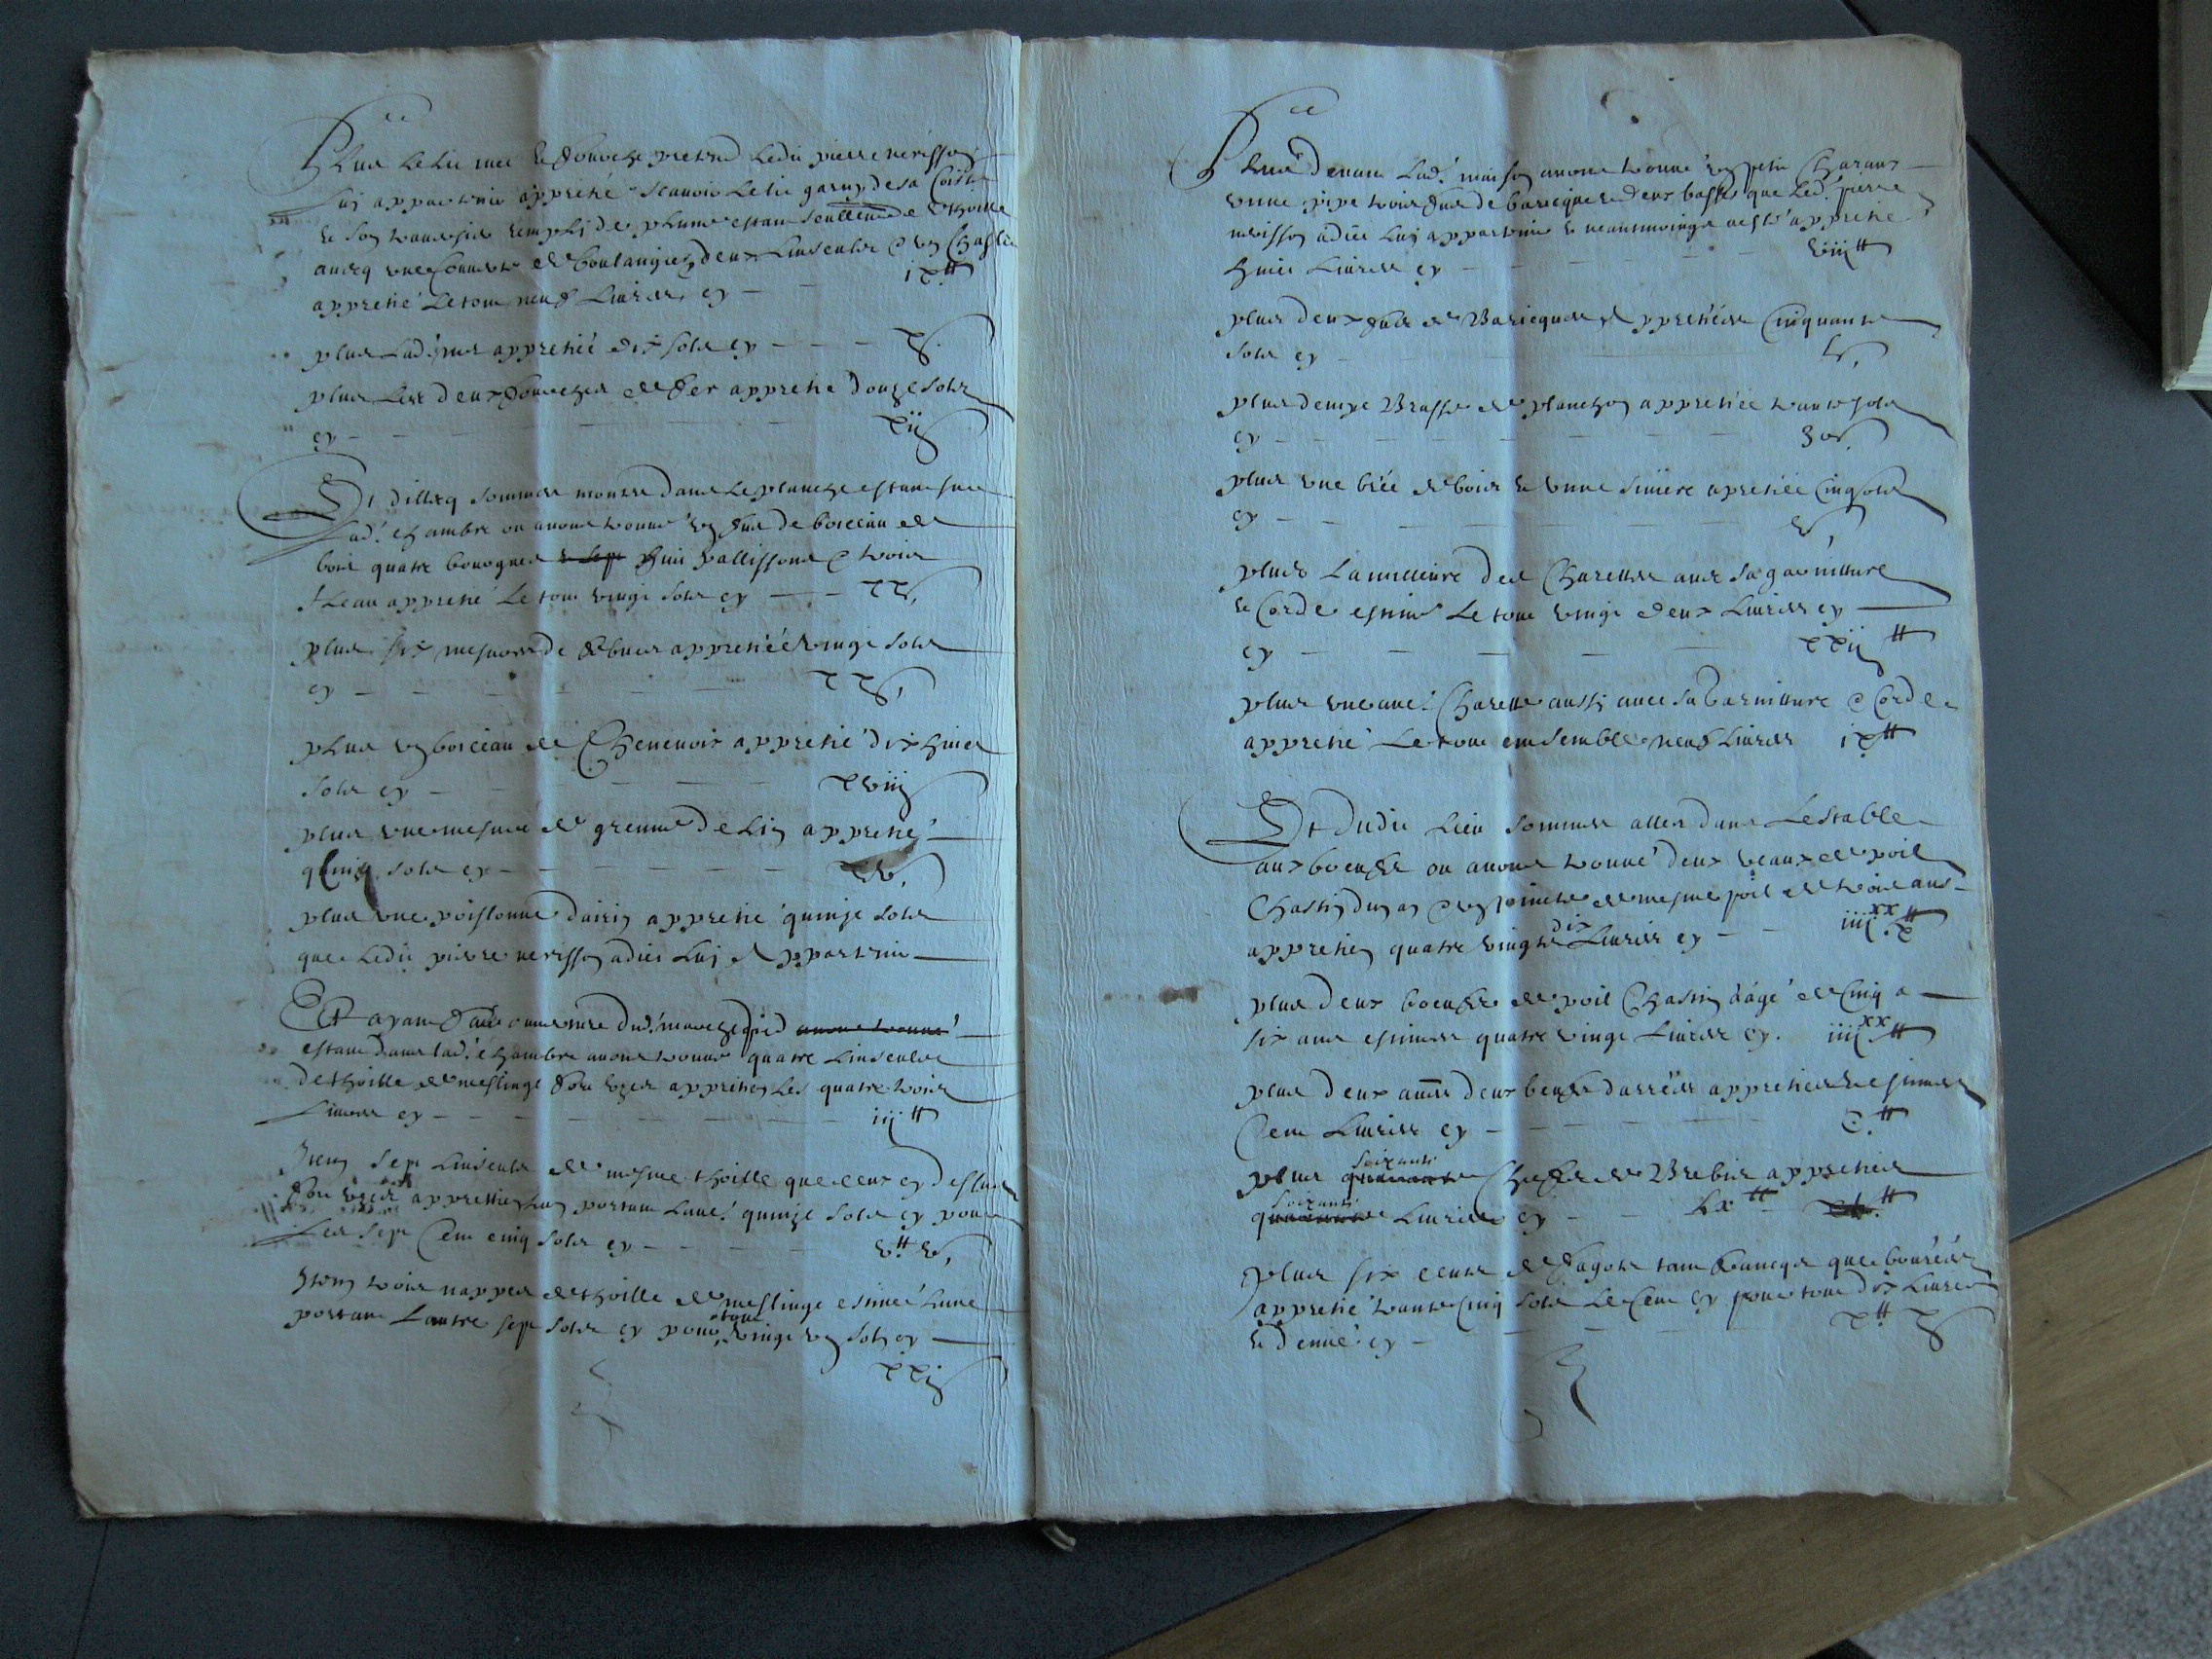 Plus le lit met et fourche pretend ledit pierre nerisson
luy appartenir apprecié scauoir le lit garny de sa coiste
et son trauersier remply de plume estant seullement de thoille
auecq une couuerte de boulangiez deux linseulx & un chaslit
apprecié le tout neuf liures cy - - ix ₶
plus lad. apprecié dix sols cy - - - x s
plus les deux fourches de fer apprecié douze sols
cy - - - - - - xii s
Et dillecq sommes montes dans le planche estant sur
lad. chambre ou auons trouué un fus de boiceau de
bois quatre bourgnes et sept huit pallissons & trois
fleau apprecié le tout vingt sols cy - - xx s
plus six mesures de febues appreciée vingt sols
cy - - - - - - xx s
plus un boiceau de chenenoix apprecié dix huict
sols cy - - - - - xviii s
plus une mesure de grenne de lin apprecié
quinze sols cy - - - - - xv s
plus une poislonne dairin apprecié quinze sols
que ledit pierre nerisson a dict luy appartenir
Et ayant faict ouuerture dud. marchepied auons trouué
estant dans lad. chambre auons trouué quatre linseulx
de thoille de meslinge fort uzez appreciez les quatre trois
liures cy - - - - - - iii ₶
Item sept linseulx de mesme thoille que ceux cy dessus
fort uzez appreciez lun portant lautre quinze sols cy pour
les sept cent cinq sols cy - - - - v ₶ v s
Item trois nappes de thoille de meslinge estimé lune
portant lautre sept sols cy pour tout vingt un sols cy
xxi s
Plus deuant lad. maison auons trouué un petit charault
une pipe trois fus de baricque et deux basses que led. pierre
nerisson a dict luy appartenir et neantmoings a esté apprecié
huict liures cy - - - - - viii ₶
plus deux fus de baricques appreciées cinquante
sols cy - - - - L s
plus demye brasse de planchon appreciée trante sols
cy - - - - - - 30 s
plus une briée de bois et une siuiere apreciée cinq sols
cy - - - - - - v s
plus la meilleure des charettes auec sa garniture
et corde estimé le tout vingt deux liures cy
cy - - - - - xxii ₶
plus une autre charette aussi auec sa garniture & corde
apprecié le tout ensemble neuf liures ix ₶
Et dudit lieu sommes alles dans lestable
aux boeufs ou auons trouué deux veaux de poil
chastin dun an & un de mesme poil de trois ans
appreciez quatre vingts dix liures cy - - iiii xx x ₶
plus deux boeufs de poil chastin dage de cinq a
six ans estimes quatre vingt liures cy. iiii xx ₶
plus deux autres deux beufs darriere appreciez et estimes
cent liures cy - - - - - C ₶
plus quarante soixante chefs de brebis appreciez
quarante soixante liures cy - - Lx ₶ - xL ₶
plus six cents de fagots tant francqs que bourées
apprecié trante cinq sols le cent cy pour tout dix liures
et demie cy - - - - - x ₶ x s